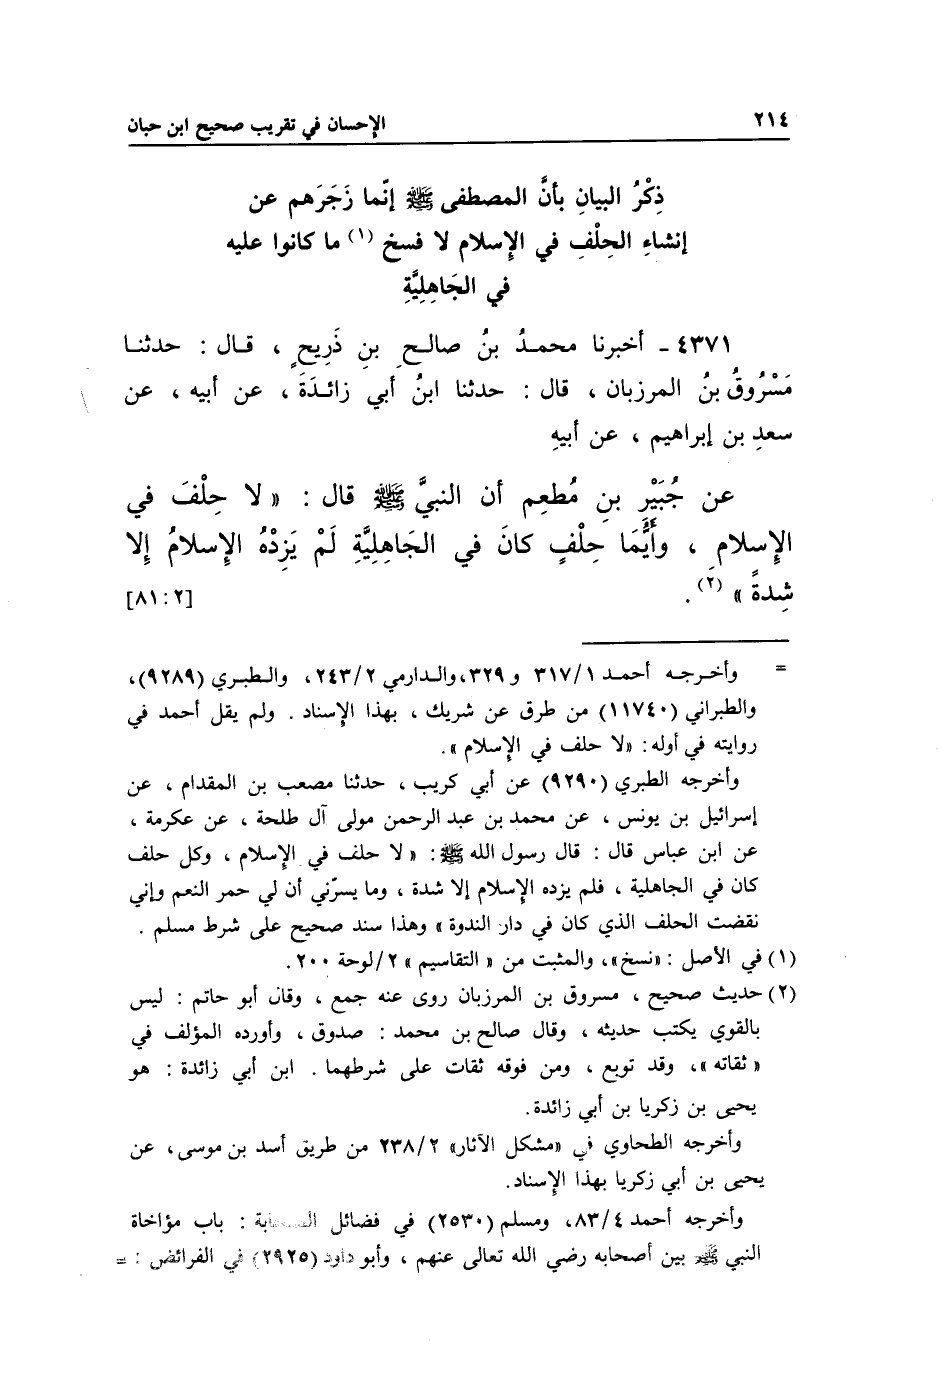 ٢١٤ الإحسان في تقريب صحيح ابن حبان
ذِكْرُ البيانِ بأنَّ المصطفى ﷺ إنّما زَجَرَهم عن
إنشاءِ الحِلْفِ في الإسلام لا فسخ (١) ما كانوا عليه
في الجَاهِليَّةِ
٤٣٧١ ـ أخبرنا محمدُ بنُ صالحِ بنِ ذَرِيحٍ ، قال : حدثنا
مَسْرُوقُ بنُ المرزبان ، قال : حدثنا ابنُ أبي زائدَةَ ، عن أبيه ، عن
سعدِ بن إبراهيم ، عن أبيهِ
عن جُبَيْرِ بنِ مُطعِم أن النبيَّ ﷺ قال : « لا حِلْفَ في
الإسلامِ ، وأَيُّمَا حِلْفٍ كانَ في الجَاهِليَّةِ لَمْ يَزِدْهُ الإسلامُ إلا
شِدةً » (٢) . [٢ : ٨١]
= وأخرجه أحمد ٣١٧/١ و ٣٢٩، والدارمي ٢٤٣/٢ ، والطبري (٩٢٨٩)،
والطبراني (١١٧٤٠) من طرق عن شريك ، بهذا الإسناد . ولم يقل أحمد في
روايته في أوله : «لا حلف في الإسلام ».
وأخرجه الطبري (٩٢٩٠) عن أبي كريب ، حدثنا مصعب بن المقدام ، عن
إسرائيل بن يونس ، عن محمد بن عبد الرحمن مولى آل طلحة ، عن عكرمة ،
عن ابن عباس قال : قال رسول الله ﷺ : « لا حلف في الإسلام ، وكل حلف
كان في الجاهلية ، فلم يزده الإسلام إلا شدة ، وما يسرّني أن لي حمر النعم وإني
نقضت الحلف الذي كان في دار الندوة » وهذا سند صحيح على شرط مسلم .
(١) في الأصل : «نسخ»، والمثبت من « التقاسيم » ٢/لوحة ٢٠٠ .
(٢) حديث صحيح ، مسروق بن المرزبان روى عنه جمع ، وقال أبو حاتم : ليس
بالقوي يكتب حديثه ، وقال صالح بن محمد : صدوق ، وأورده المؤلف في
« ثقاته »، وقد توبع ، ومن فوقه ثقات على شرطهما . ابن أبي زائدة : هو
يحيى بن زكريا بن أبي زائدة .
وأخرجه الطحاوي في «مشكل الآثار» ٢٣٨/٢ من طريق أسد بن موسى ، عن
يحيى بن أبي زكريا بهذا الإسناد .
وأخرجه أحمد ٨٣/٤، ومسلم (٢٥٣٠) في فضائل الصحابة : باب مؤاخاة
النبي ﷺ بين أصحابه رضي الله تعالى عنهم ، وأبو داود (٢٩٢٥) في الفرائض : =